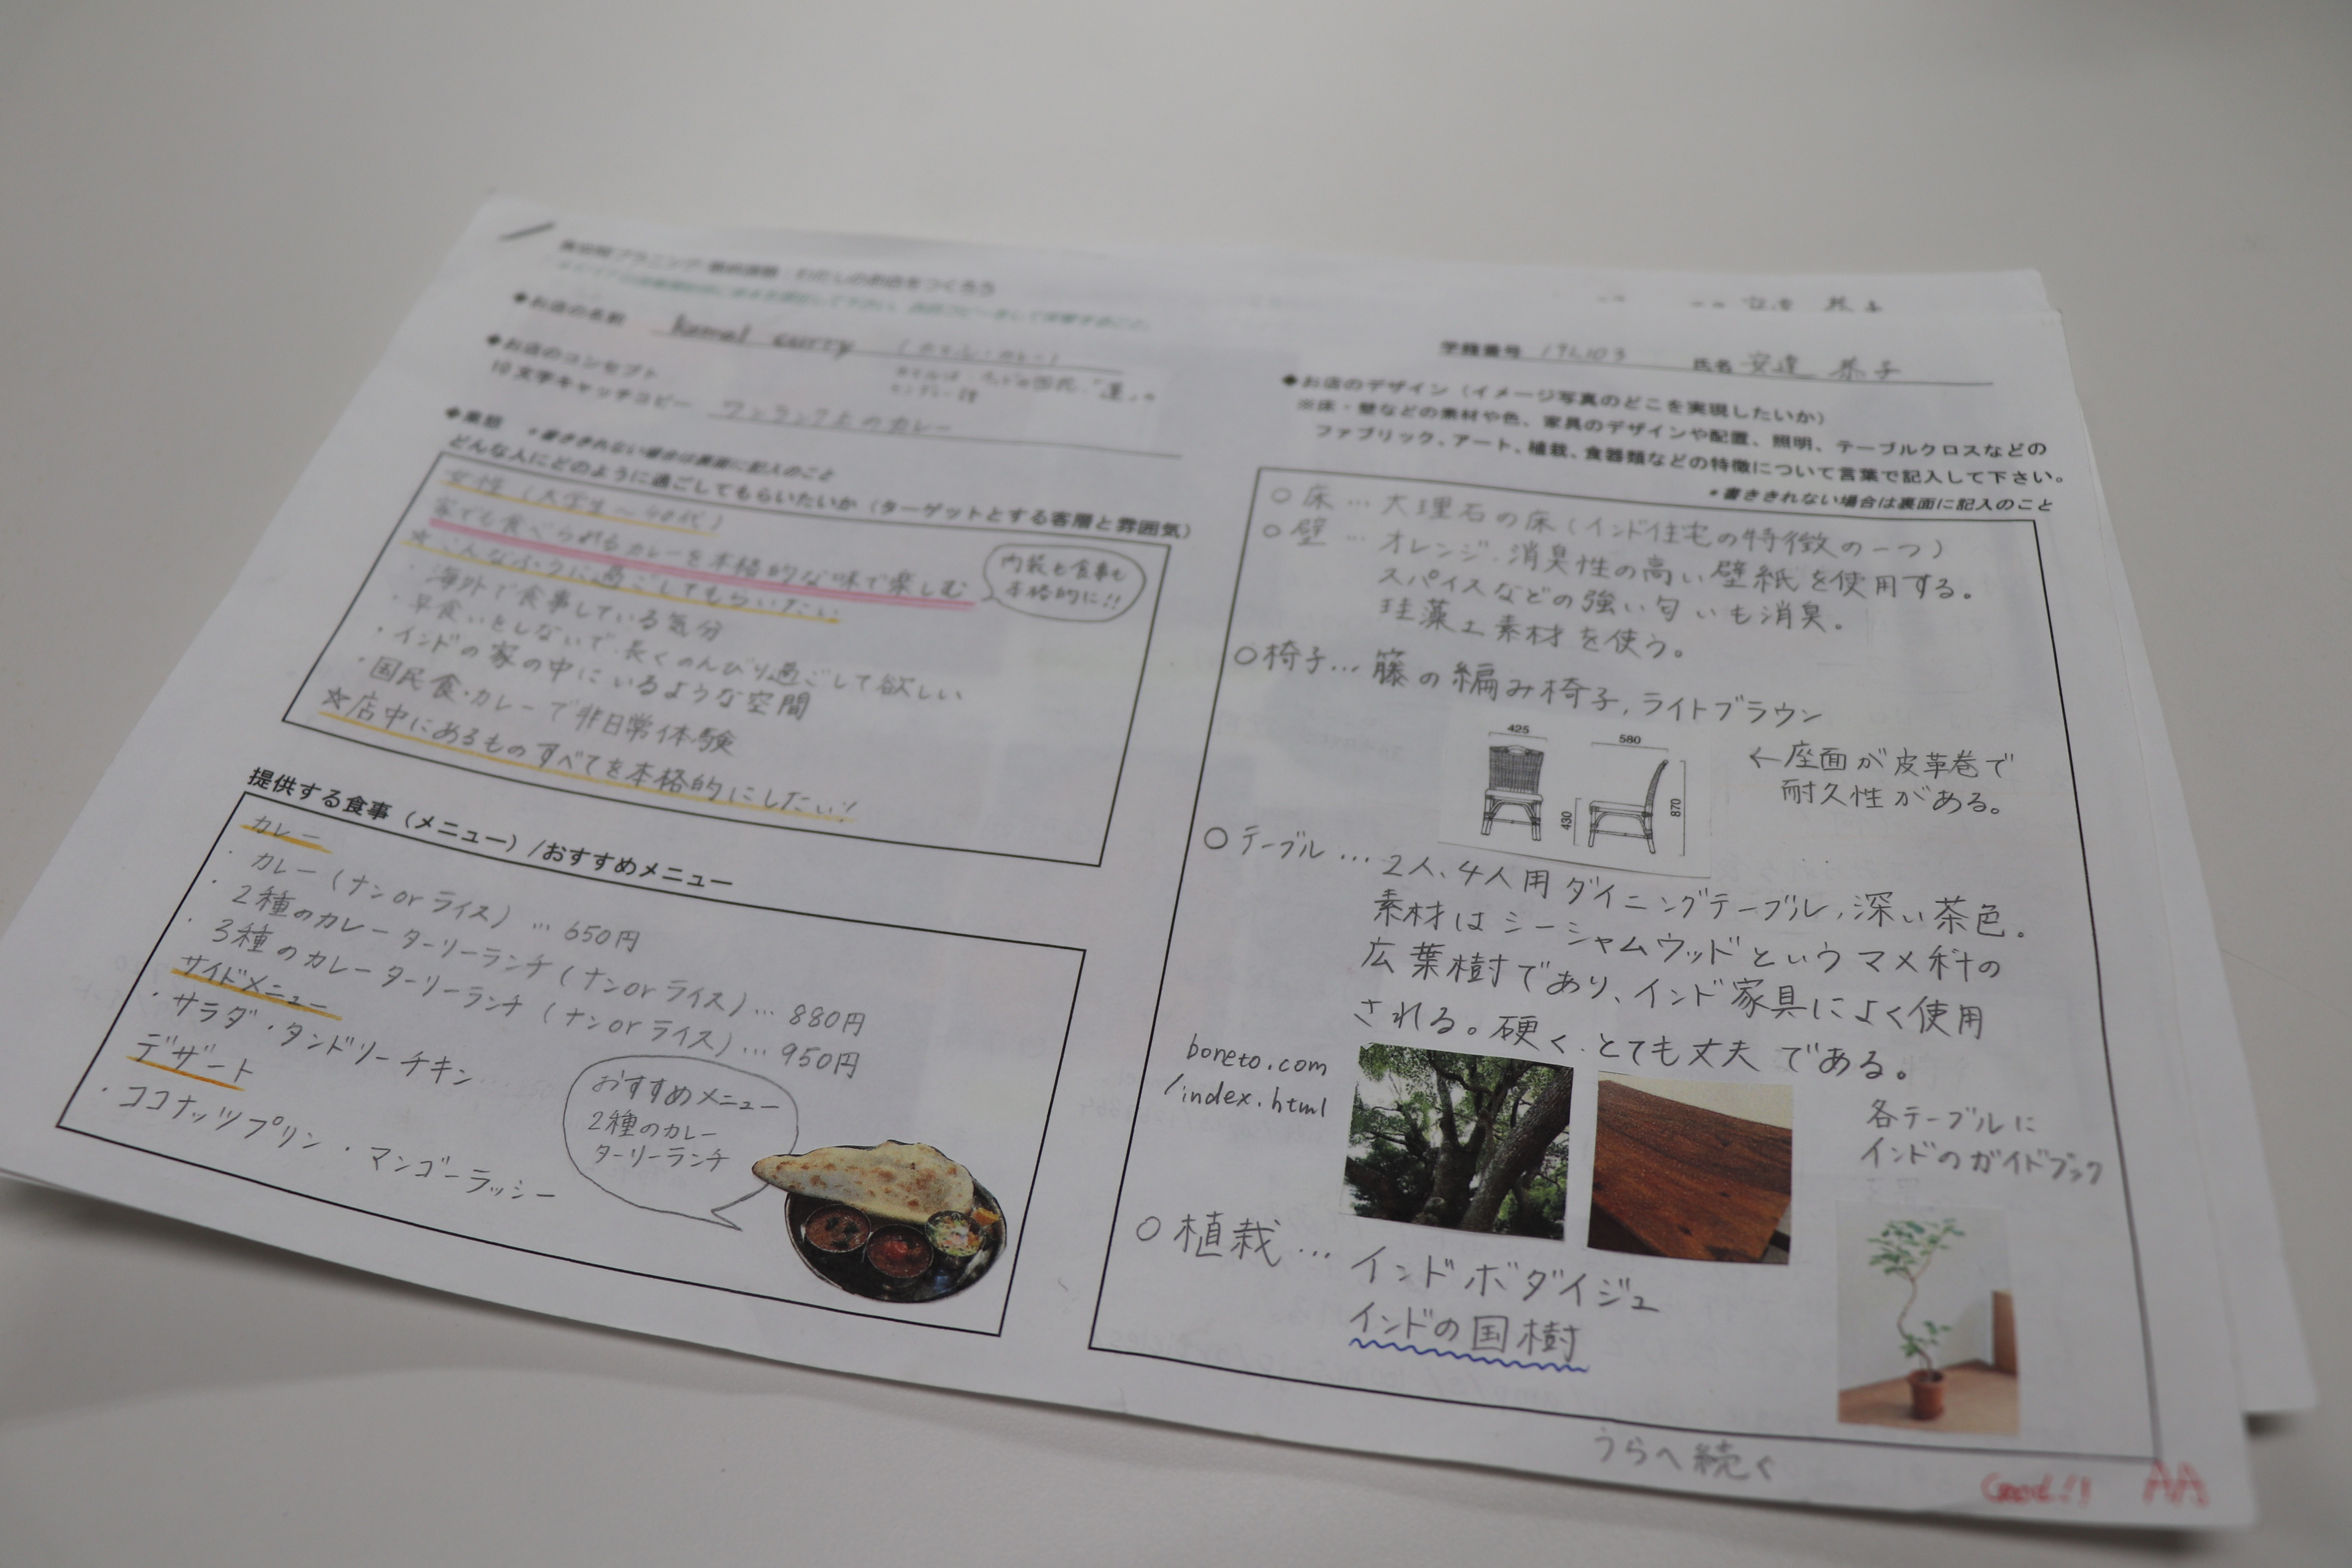 プラニング 最終課題：わたしのお店をつくろう
◆お店の名前 Kamal curry （カマル・カレー）
◆お店のコンセプト
10文字キャッチコピー ワンランク上のカレー
◆業態 ＊書ききれない場合は裏面に記入のこと
どんな人にどのように過ごしてもらいたいか（ターゲットとする客層と雰囲気）
女性（大学生～40代）
家でも食べられるカレーを本格的な味で楽しむ
内装も食事も
本格的に!!
☆こんなふうに過ごしてもらいたい
・海外で食事している気分
・早食いをしないで、長くのんびり過ごして欲しい
・インドの家の中にいるような空間
・国民食・カレーで非日常体験
☆店中にあるものすべてを本格的にしたい！
提供する食事（メニュー）/おすすめメニュー
カレー
・カレー（ナンorライス）… 650円
・2種のカレーターリーランチ（ナンorライス）… 880円
・3種のカレーターリーランチ（ナンorライス）… 950円
サイドメニュー
・サラダ・タンドリーチキン
デザート
・ココナッツプリン ・マンゴーラッシー
おすすめメニュー
2種のカレー
ターリーランチ
学籍番号 氏名 安達 恭子
◆お店のデザイン（イメージ写真のどこを実現したいか）
※床・壁などの素材や色、家具のデザインや配置、照明、テーブルクロスなどの
ファブリック、アート、植栽、食器類などの特徴について言葉で記入して下さい。
＊書ききれない場合は裏面に記入のこと
○床… 大理石の床（インド住宅の特徴の一つ）
○壁 … オレンジ、消臭性の高い壁紙を使用する。
スパイスなどの強い匂いも消臭。
珪藻土素材を使う。
○椅子… 籐の編み椅子，ライトブラウン
425
580
430
870
←座面が皮革巻で
耐久性がある。
○テーブル … 2人、4人用ダイニングテーブル，深い茶色。
素材はシーシャムウッドというマメ科の
広葉樹であり、インド家具によく使用
される。硬く、とても丈夫である。
boneto.com
/index.html
各テーブルに
インドのガイドブック
○植栽… インドボダイジュ
インドの国樹
うらへ続く
Good!! AA